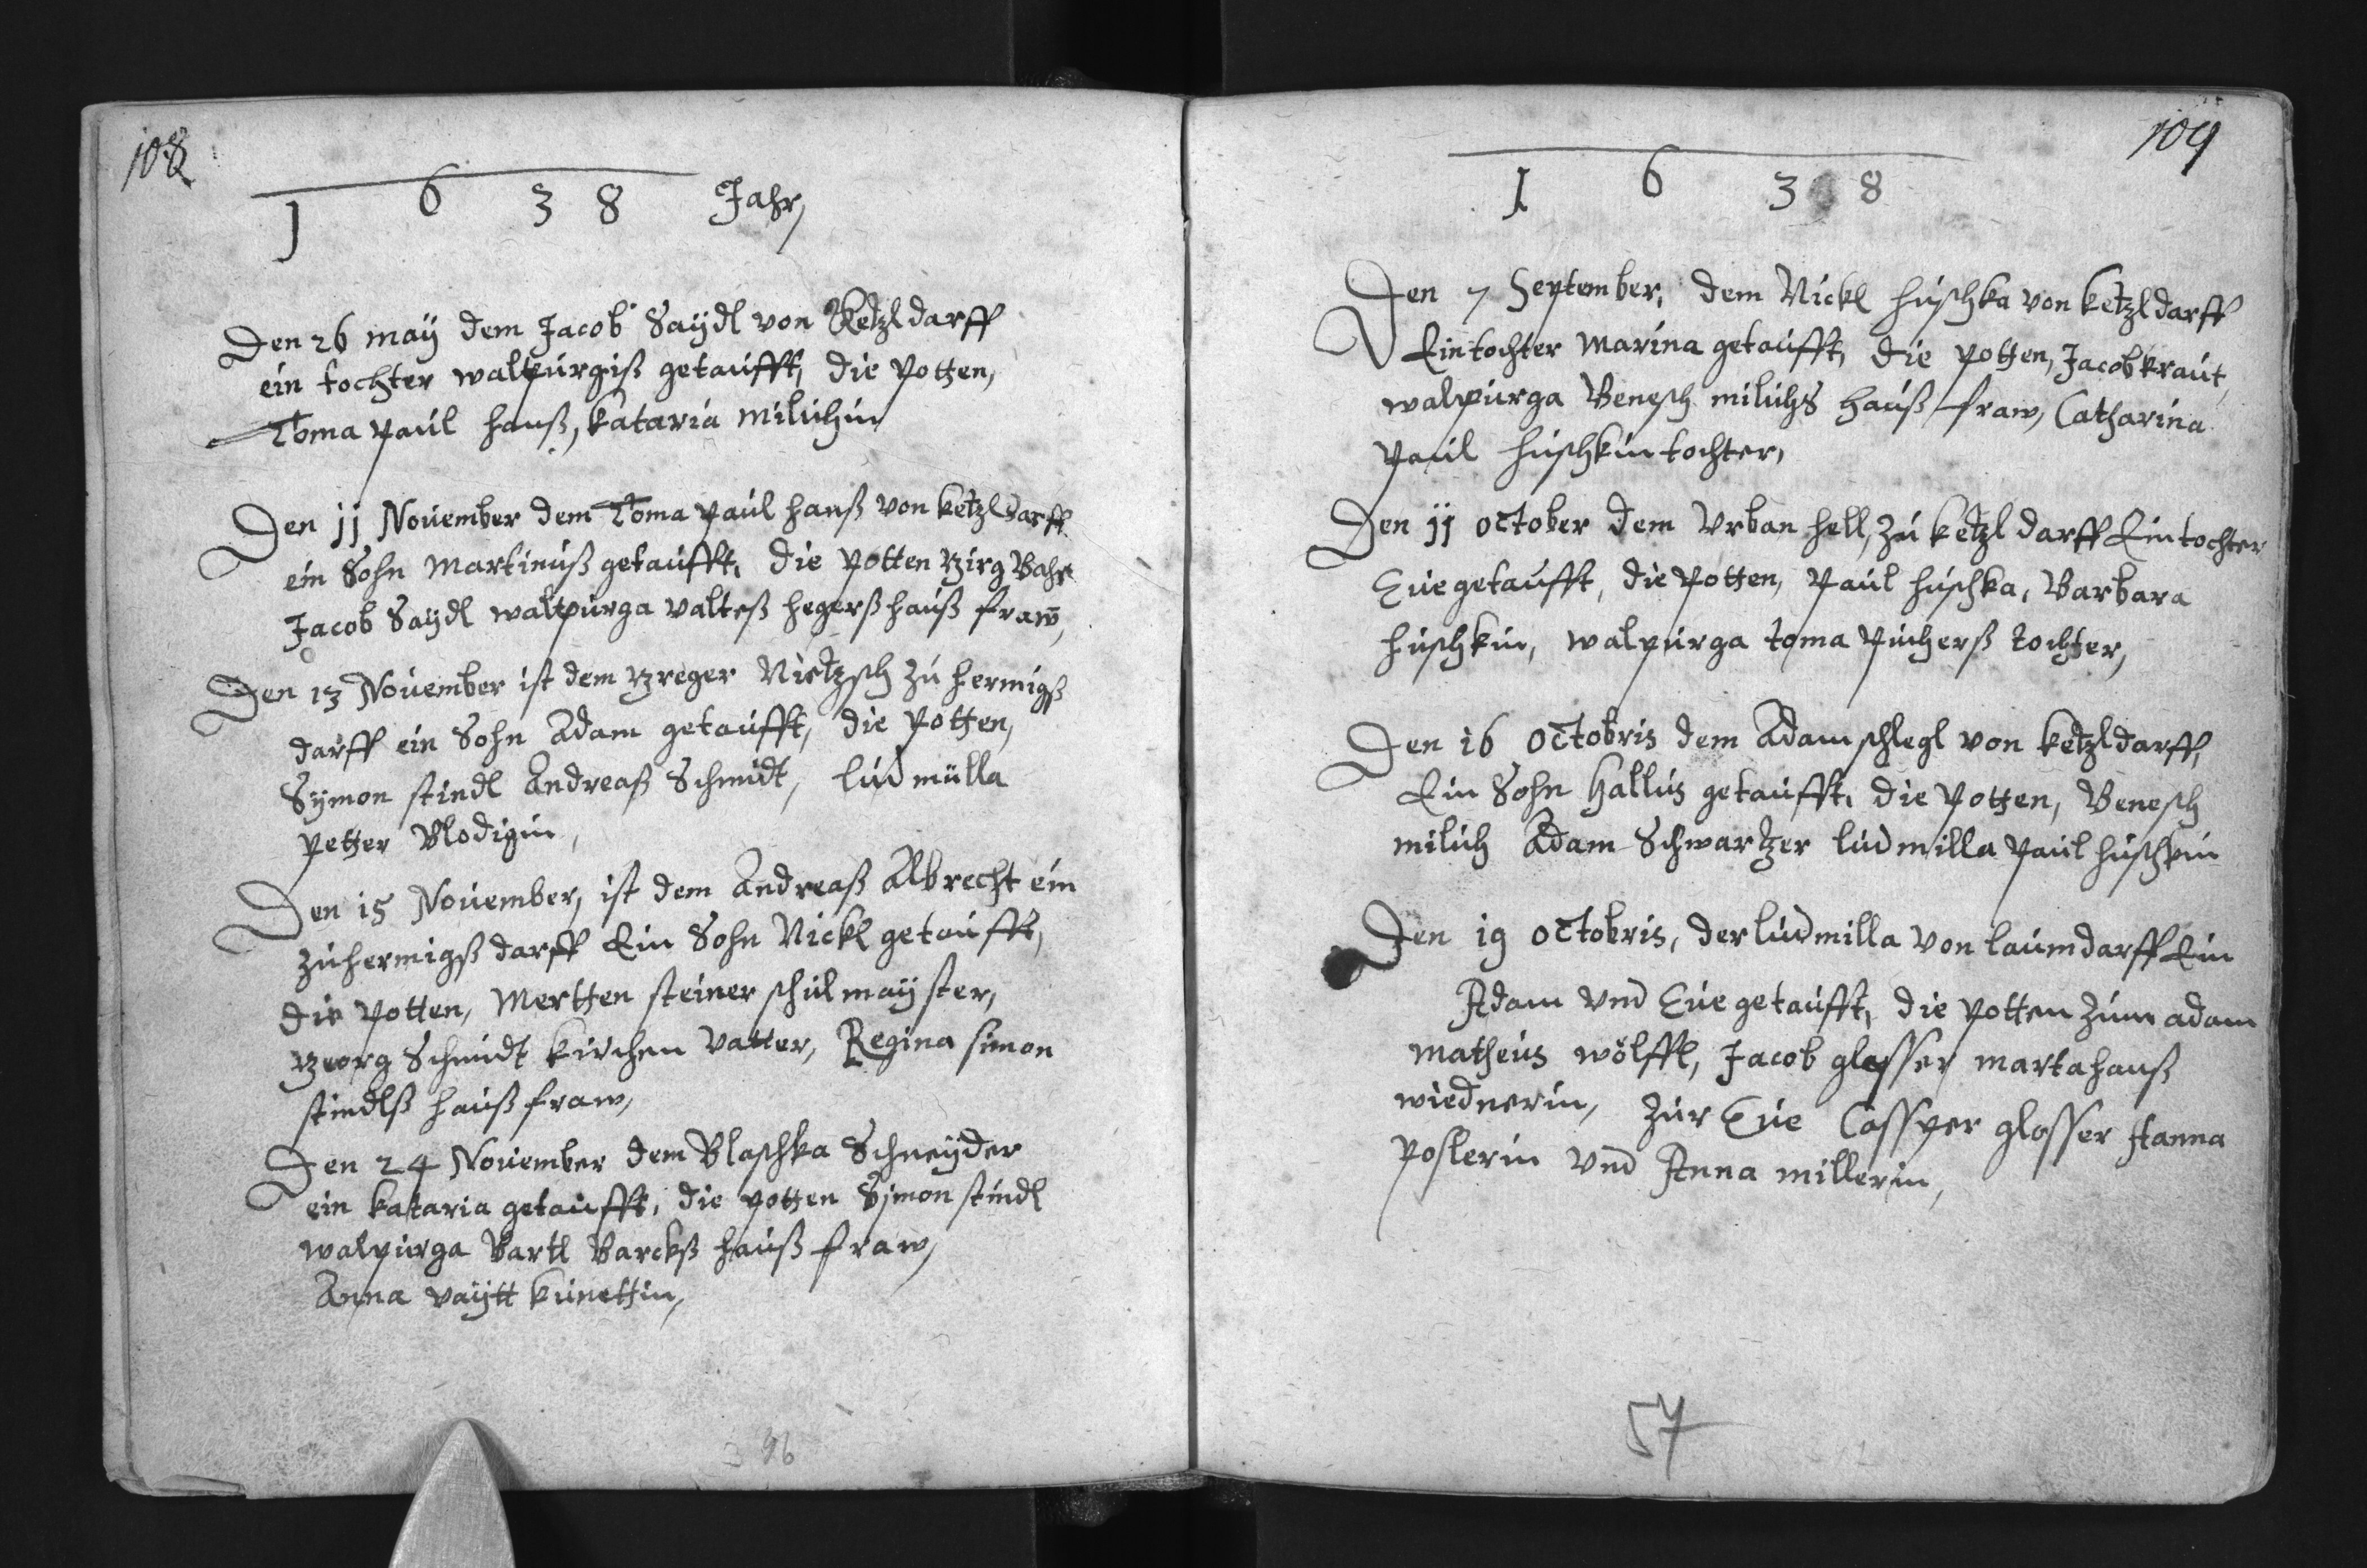 108
1 6 3 8 Jahr,
Den 26 maÿ dem Jacob Saÿdl von Ketzldarff
ein tochter waltpurgiß getaufft, die Potten,
Toma Paul hanß, kataria milichin
Den 11 November dem Toma Paul hanß von ketzldarff
ein Sohn Martinuß getaufft, die Potten Görg Bahr
Jacob Saÿdl waltpurga valteß hegerß hauß fraw,
Den 13 November ist dem Greger Nietzsch zu hermigß
darff ein Sohn Adam getaufft, die Potten,
Sÿmon stindl Andreaß Schmidt, ludmülla
Petter Blodigin,
Den 15 November, ist dem Andreaß Albrecht ein
zu hermigß darff Ein Sohn Nickl getaufft,
die Potten, Mertten steiner schulmaÿster,
Georg Schmidt kirchen vatter, Regina simon
stindlß hauß fraw,
Den 24 November dem Blaschka Schneÿder
ein kataria getaufft, die potten Sÿmon stindl
walpurga Bartl Barckß hauß fraw,
Anna vaÿtt kunettin,
396
109
1 6 3 8
Den 7 September, dem Nickl huschka von ketzldarff
Ein tochter Marina getaufft, die potten, Jacob kraut,
walpurga Benesch milichs hauß fraw, Catharina
Paul huschkin tochter,
Den 11 october dem Urban hell, zu ketzl darff Ein tochter
Eue getaufft, die Potten, Paul huschka, Barbara
huschkin, walpurga toma Pucherß tochter,
Den 16 octobris dem Adam schlegl von ketzldarff,
Ein Sohn Hallus getaufft, die Potten, Benesch
milich Adam Schwartzer ludmilla Paul huschkin
Den 19 octobris, der ludmilla von laumdarff Ein
Adam vnd Eue getaufft, die potten zum adam
matheus wölffl, Jacob glasser marta hanß
wiednerin, zur Eue Cassper glosser Hanna
Poslerin vnd Anna millerin,
57